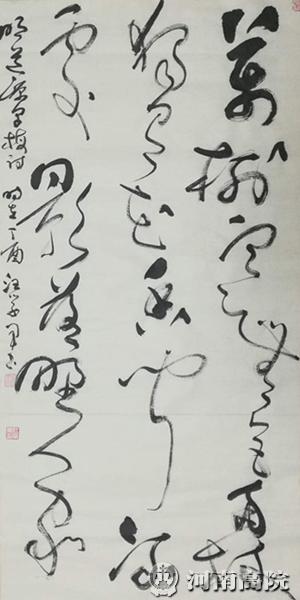 萬樹寒無色南枝
獨有花香聞流
水處影落野人家
明道源早梅詩 時在丁酉
河南書院